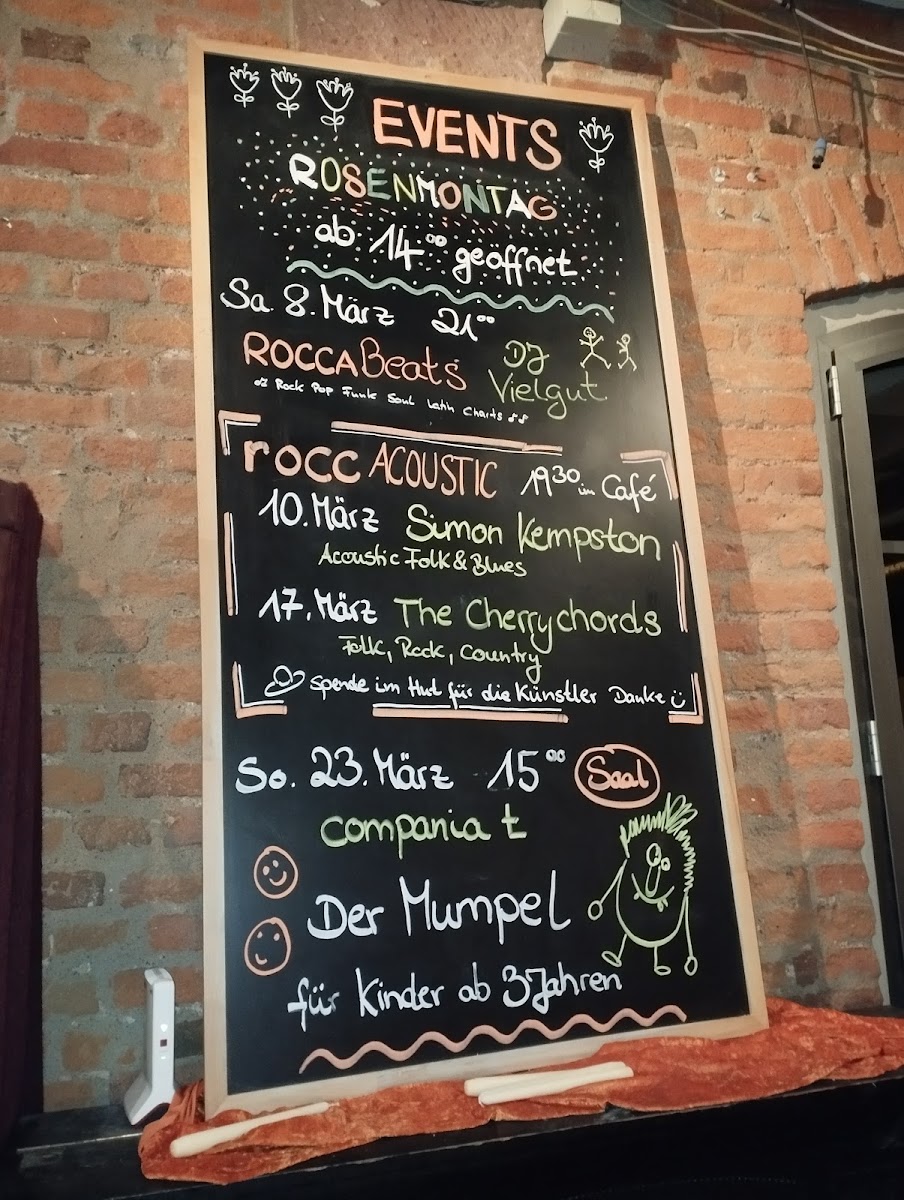 EVENTS
ROSENMONTAG
ab 14⁰⁰ geöffnet
Sa. 8. März 21⁰⁰
ROCCABeats DJ
Vielgut
Rock Pop Funk Soul Latin Charts
roccACOUSTIC 19³⁰ im Café
10. März Simon Kempston
Acoustic Folk & Blues
17. März The Cherrychords
Folk, Rock, Country
Spende im Hut für die Künstler Danke
So. 23. März 15⁰⁰ Saal
compania t
Der Mumpel
für Kinder ab 3 Jahren